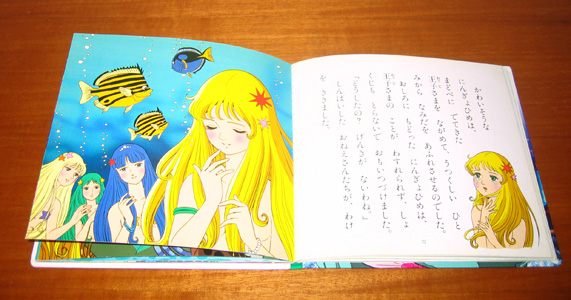 かわいそうな
にんぎょひめは、
まどべに でてきた
王子さまを ながめて、うつくしい ひと
みから なみだを あふれさせるのでした。
おしろに もどった にんぎょひめは、
王子さまの ことが わすれられず、しょ
くじも とらないで おもいつづけました。
「どうしたの? げんきが ないわね。」
しんぱいした おねえさんたちが、わけ
を ききました。